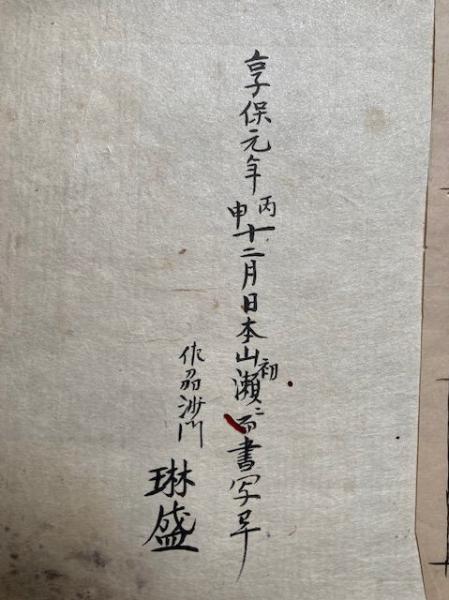 享保元年丙申十二月日本山初瀬ニ而書写早
作刕沙門
琳盛